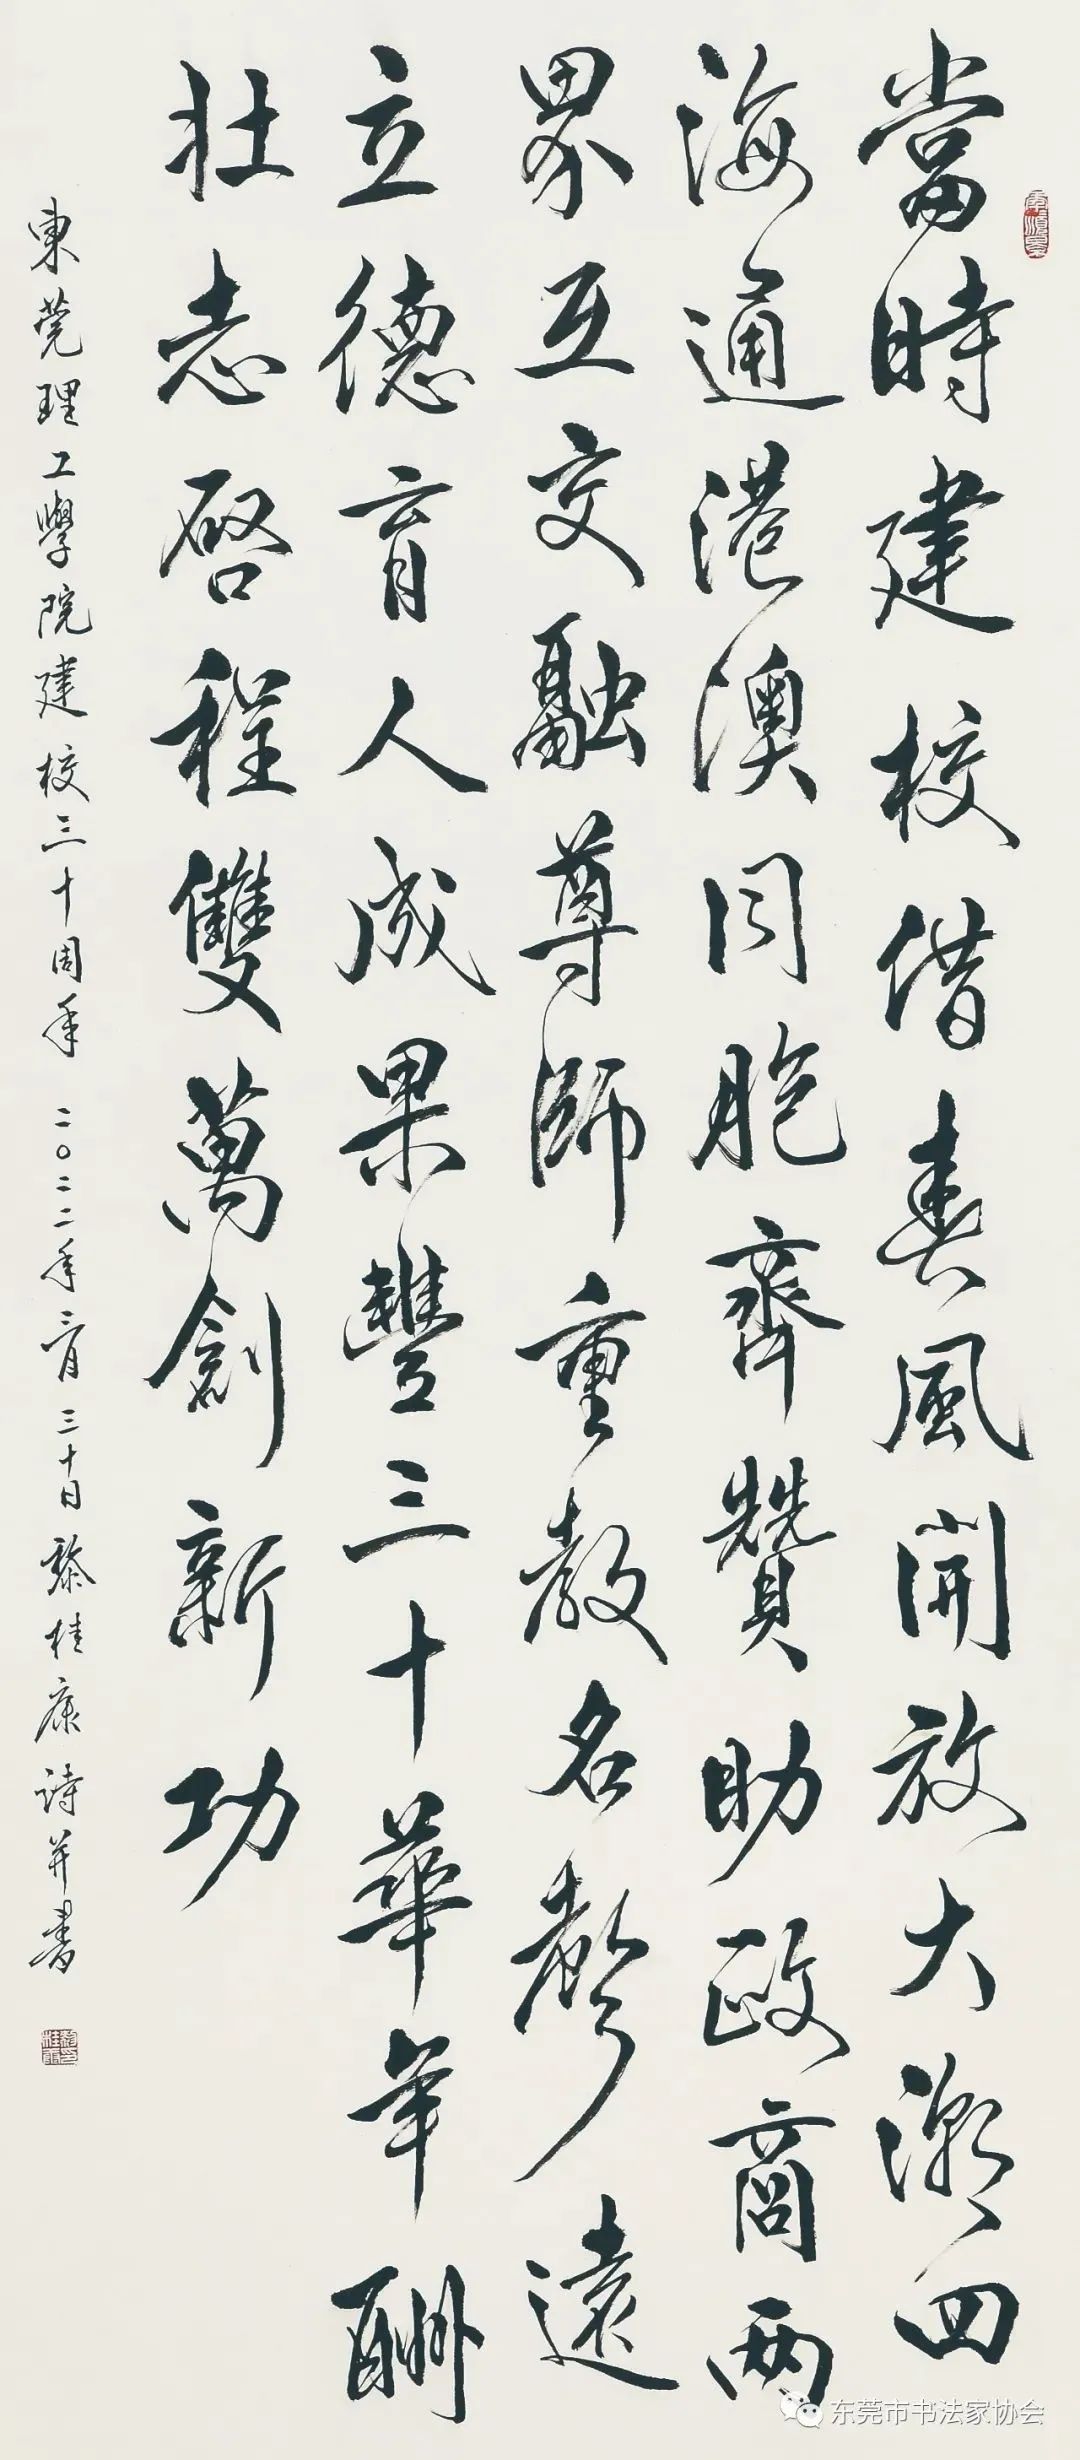 當時建校借春風開放大潮四
海通港澳同胞齊贊助政商兩
界互交融尊師重教名聲遠
立德育人成果豐三十華年酬
壯志啓程雙萬創新功
東莞理工學院建校三十周年 二〇二二年三月三十日黎桂康詩并書
东莞市书法家协会